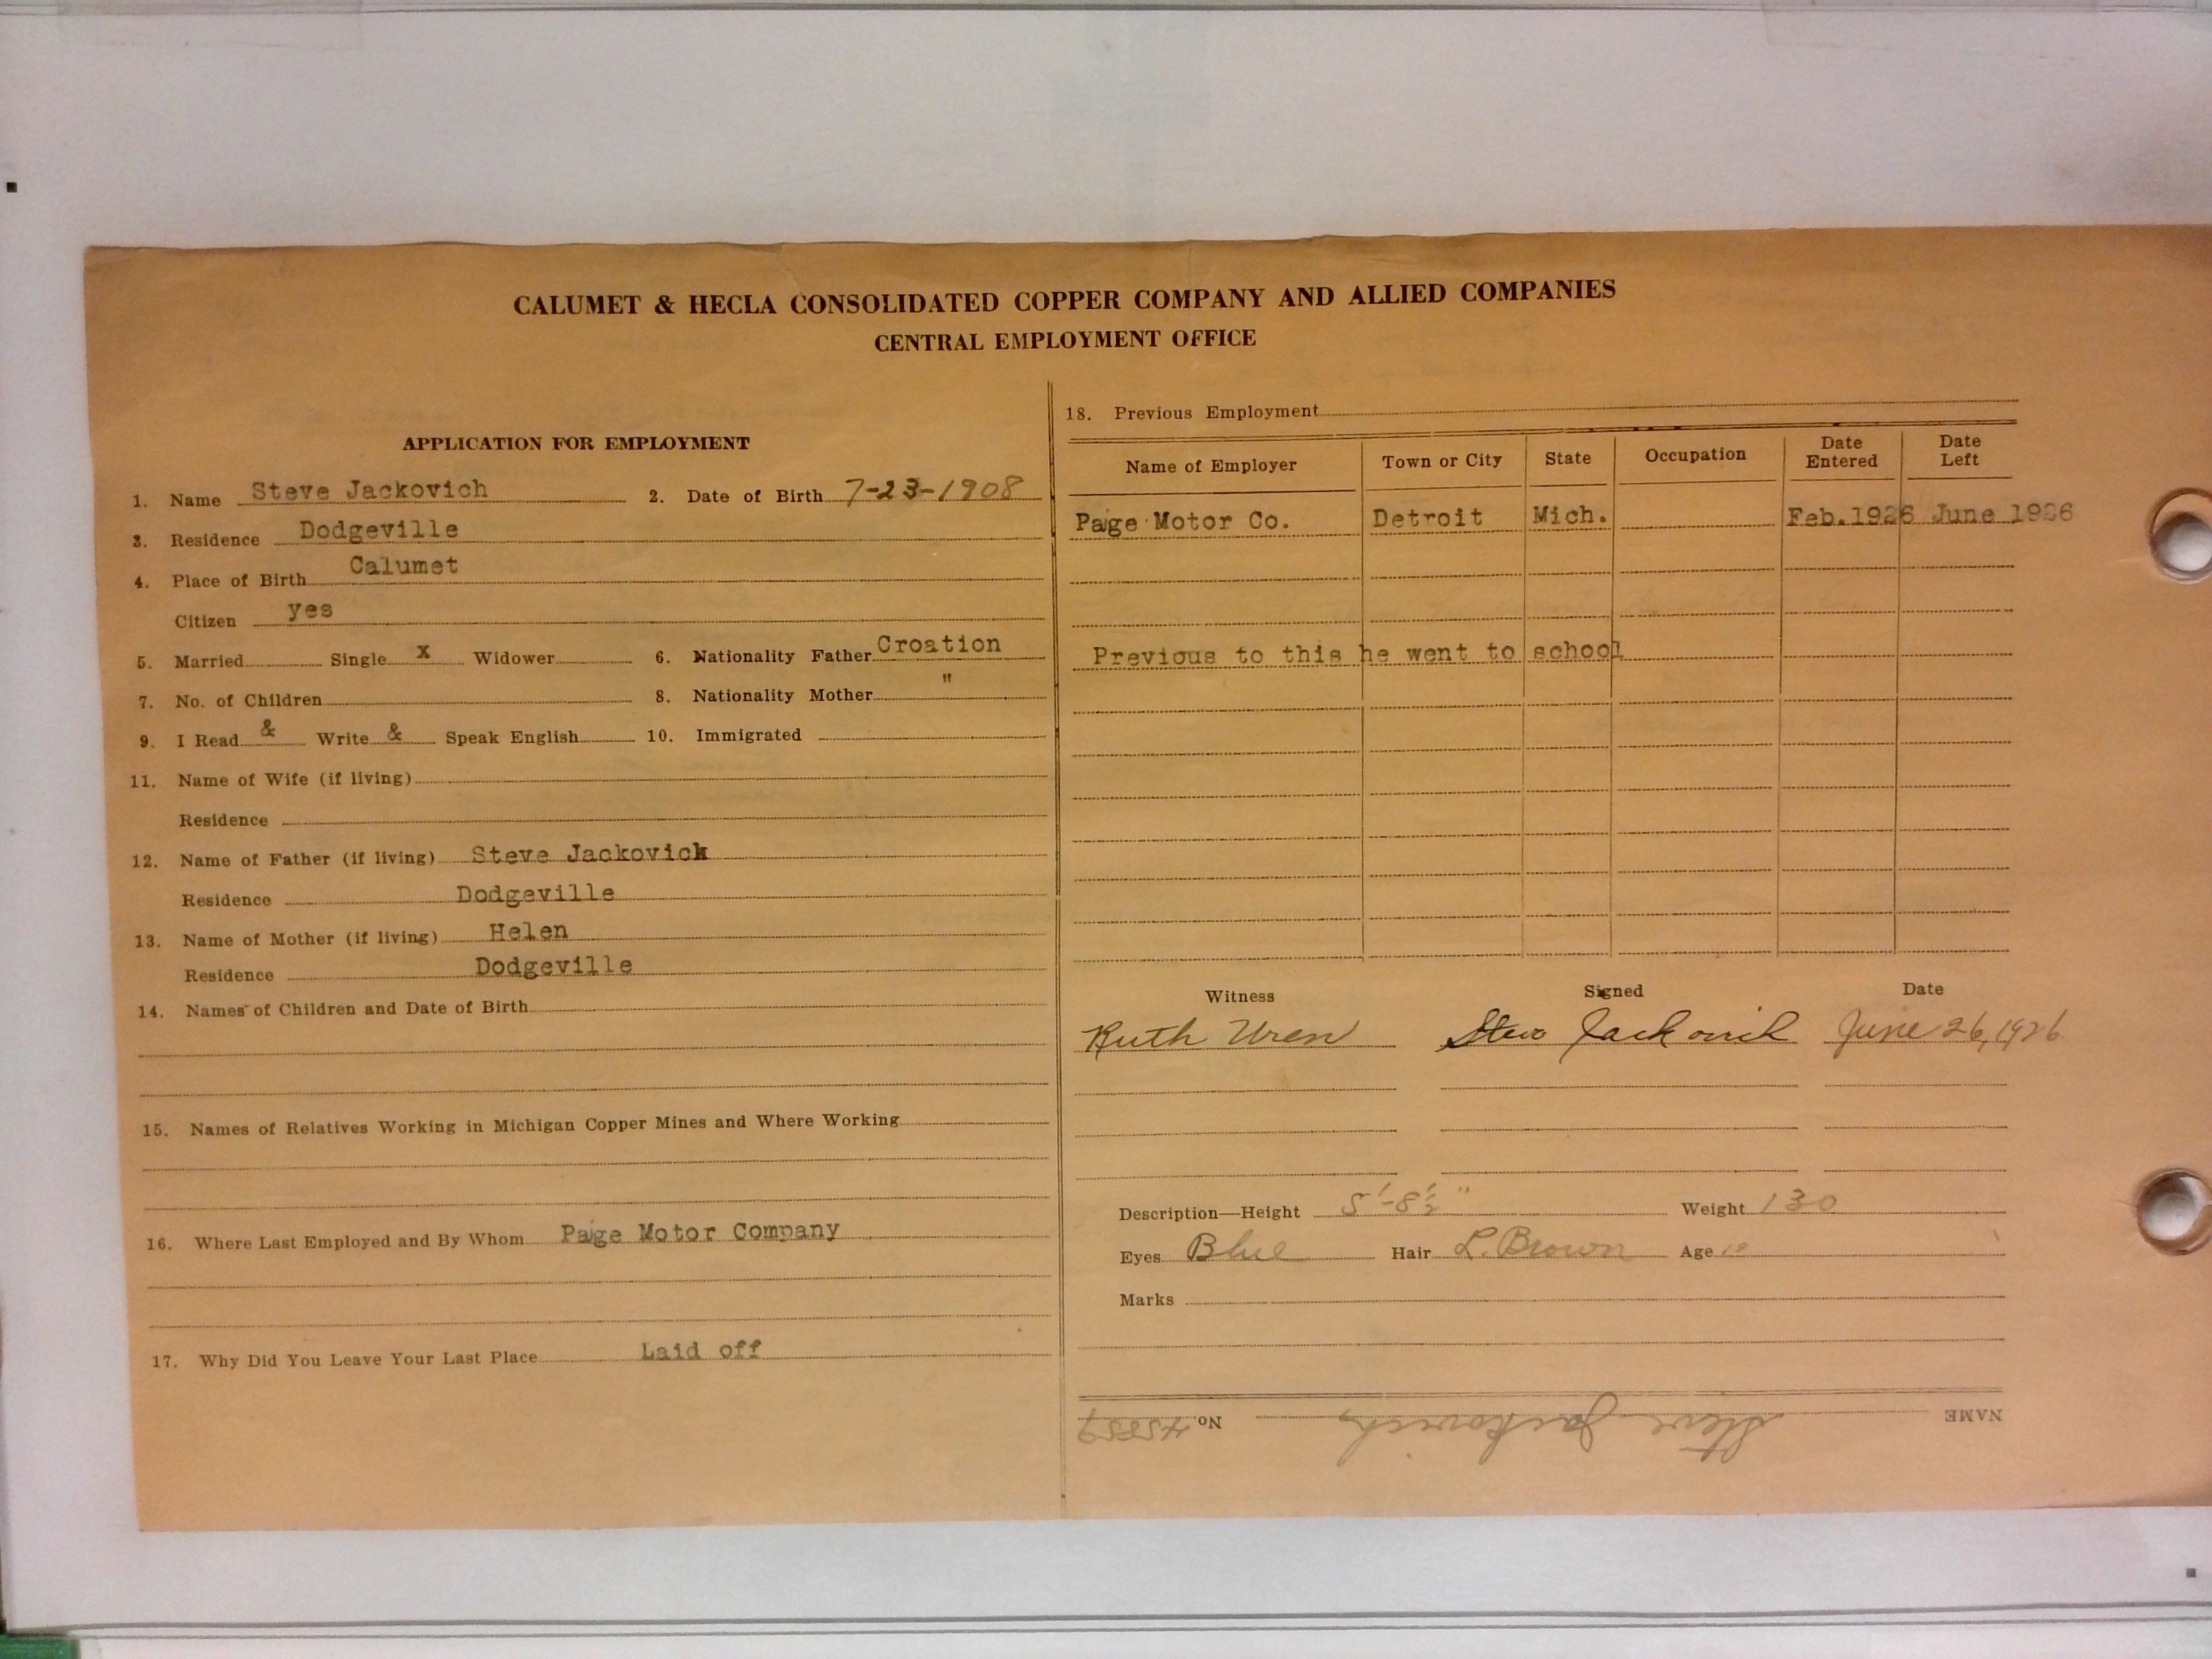 CALUMET & HECLA CONSOLIDATED COPPER COMPANY AND ALLIED COMPANIES
CENTRAL EMPLOYMENT OFFICE
APPLICATION FOR EMPLOYMENT
1. Name Steve Jackovich 2. Date of Birth 7-23-1908
3. Residence Dodgeville
4. Place of Birth Calumet
Citizen yes
5. Married Single x Widower 6. Nationality Father Croation
7. No. of Children 8. Nationality Mother "
9. I Read & Write & Speak English 10. Immigrated
11. Name of Wife (if living)
Residence
12. Name of Father (if living) Steve Jackovich
Residence Dodgeville
13. Name of Mother (if living) Helen
Residence Dodgeville
14. Names of Children and Date of Birth
15. Names of Relatives Working in Michigan Copper Mines and Where Working
16. Where Last Employed and By Whom Paige Motor Company
17. Why Did You Leave Your Last Place Laid off
18. Previous Employment
Name of Employer Town or City State Occupation Date Entered Date Left
Paige Motor Co. Detroit Mich. Feb. 1926 June 1926
Previous to this he went to school
Witness Signed Date
Ruth Uren Steve Jackovich June 26, 1926
Description—Height 5'-8½" Weight 130
Eyes Blue Hair L. Brown Age
Marks
NAME Steve Jackovich No. 45859